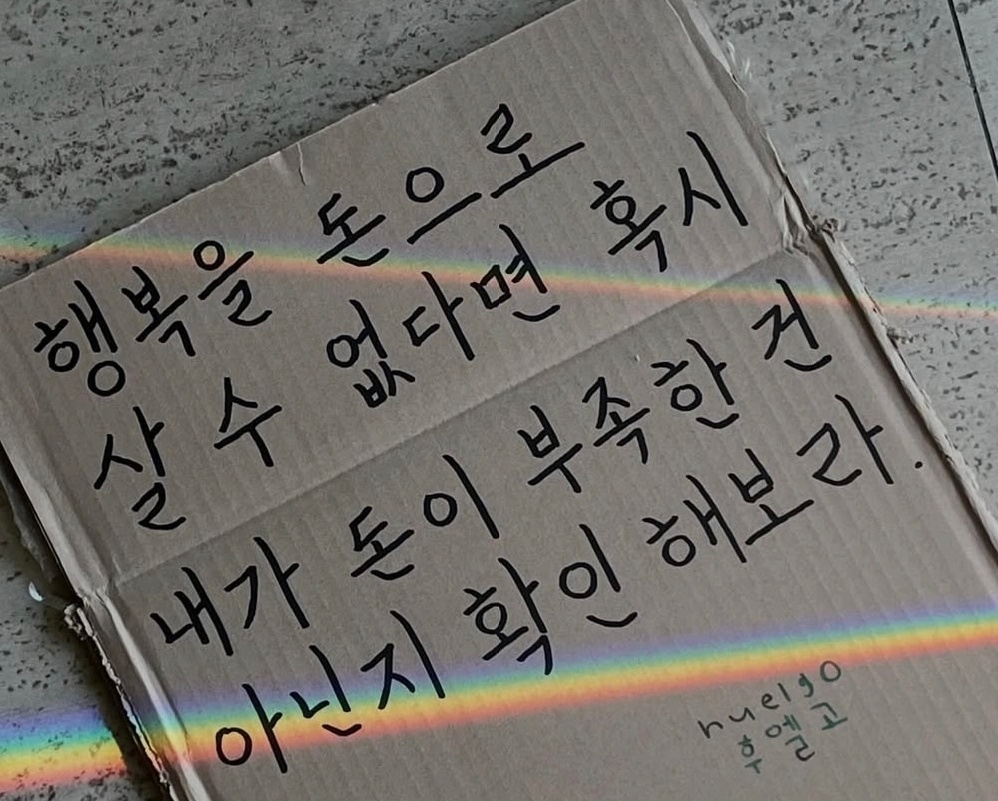 행복을 돈으로
살 수 없다면 혹시
내가 돈이 부족한 건
아닌지 확인 해보라.
huelgo
후엘고